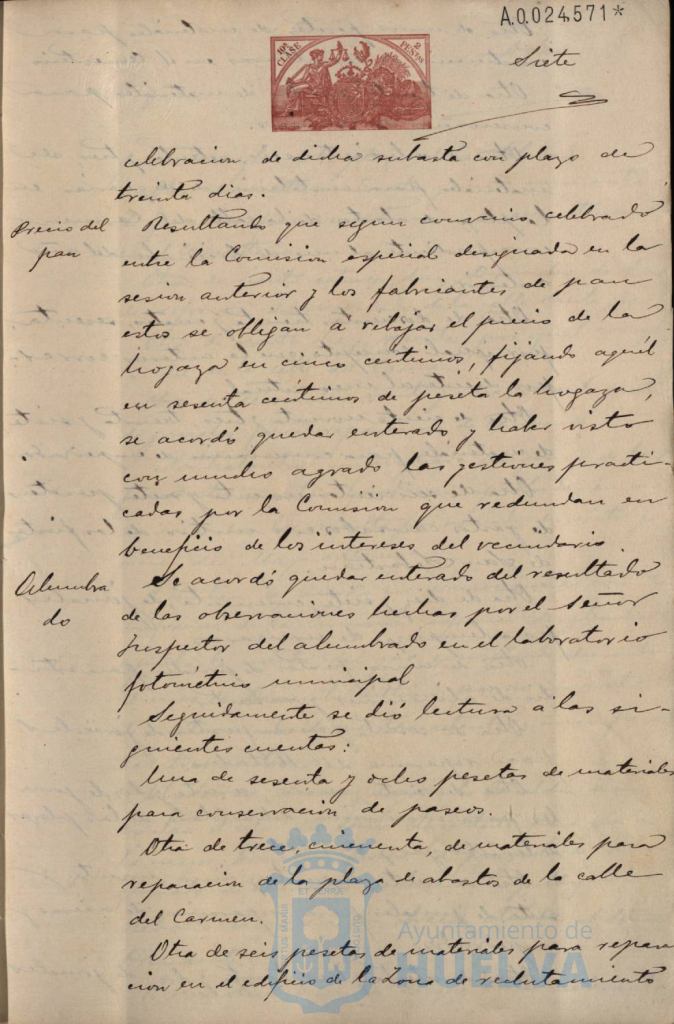 A.0.024.571*
10ª CLASE
2 PESETAS
Siete
celebracion de dicha subasta con plazo de
treinta dias.
Precio del
pan
Resultando que segun convenio celebrado
entre la Comision especial designada en la
sesion anterior y los fabricantes de pan
estos se obligan á rebajar el precio de la
hogaza en cinco centimos, fijando aquél
en sesenta céntimos de peseta la hogaza,
se acordó quedar enterado, y haber visto
con mucho agrado las gestiones practi-
cadas por la Comision que redundan en
beneficio de los intereses del vecindario.
Alumbra
do
Se acordó quedar enterado del resultado
de las observaciones hechas por el Señor
Inspector del alumbrado en el laboratorio
fotométrico municipal
Seguidamente se dió lectura á las si-
guientes cuentas:
Una de sesenta y ocho pesetas de materiales
para conservacion de paseos.
Otra de trece, cincuenta, de materiales para
reparacion de la plaza de abastos de la calle
del Carmen.
Otra de seis pesetas de materiales para repara
cion en el edificio de la Zona de reclutamiento
Ayuntamiento de
HUELVA